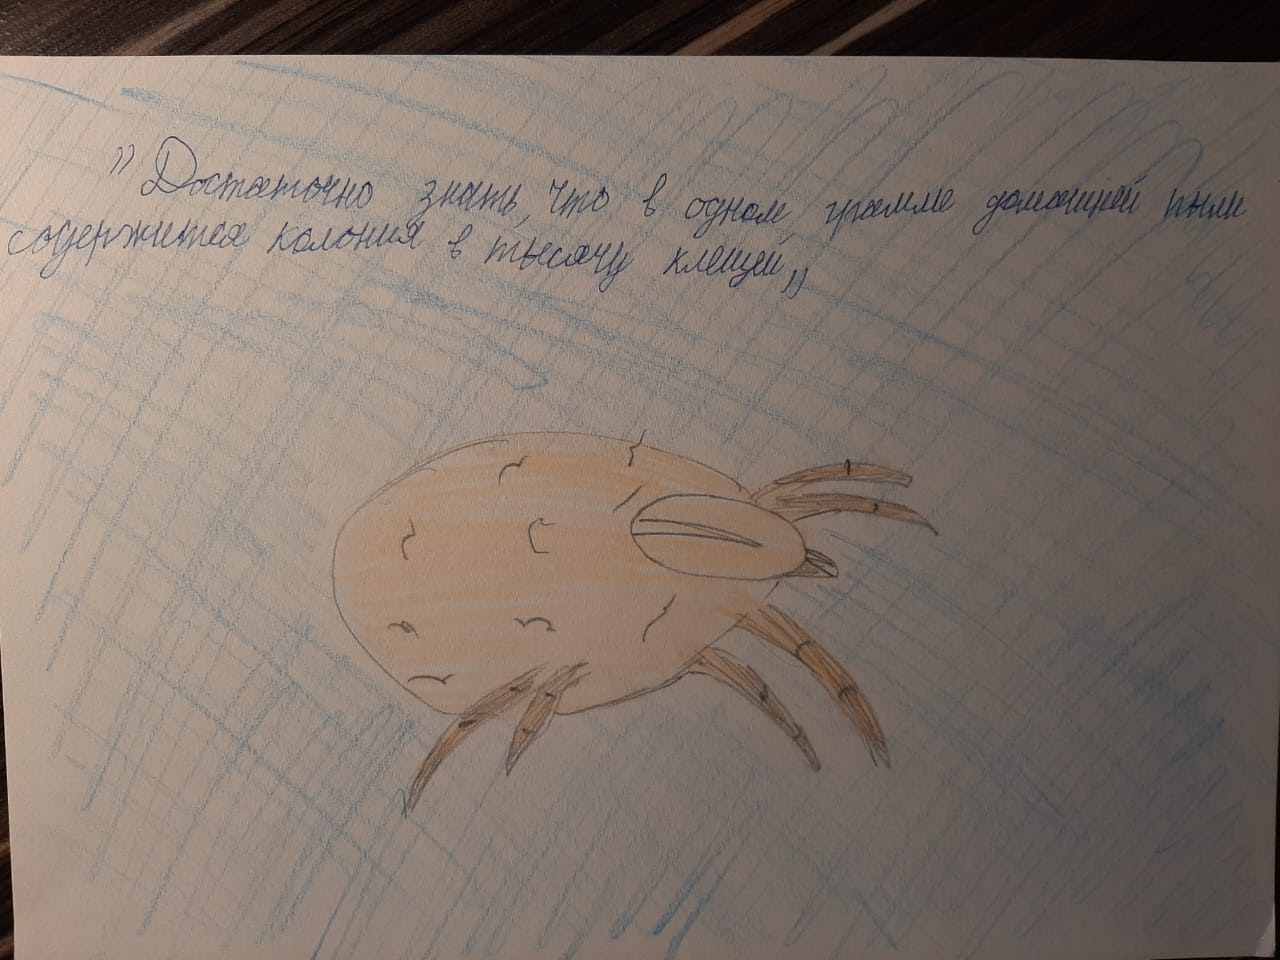 "Достаточно знать, что в одном грамме домашней пыли
содержится колония в тысячу клещей,,